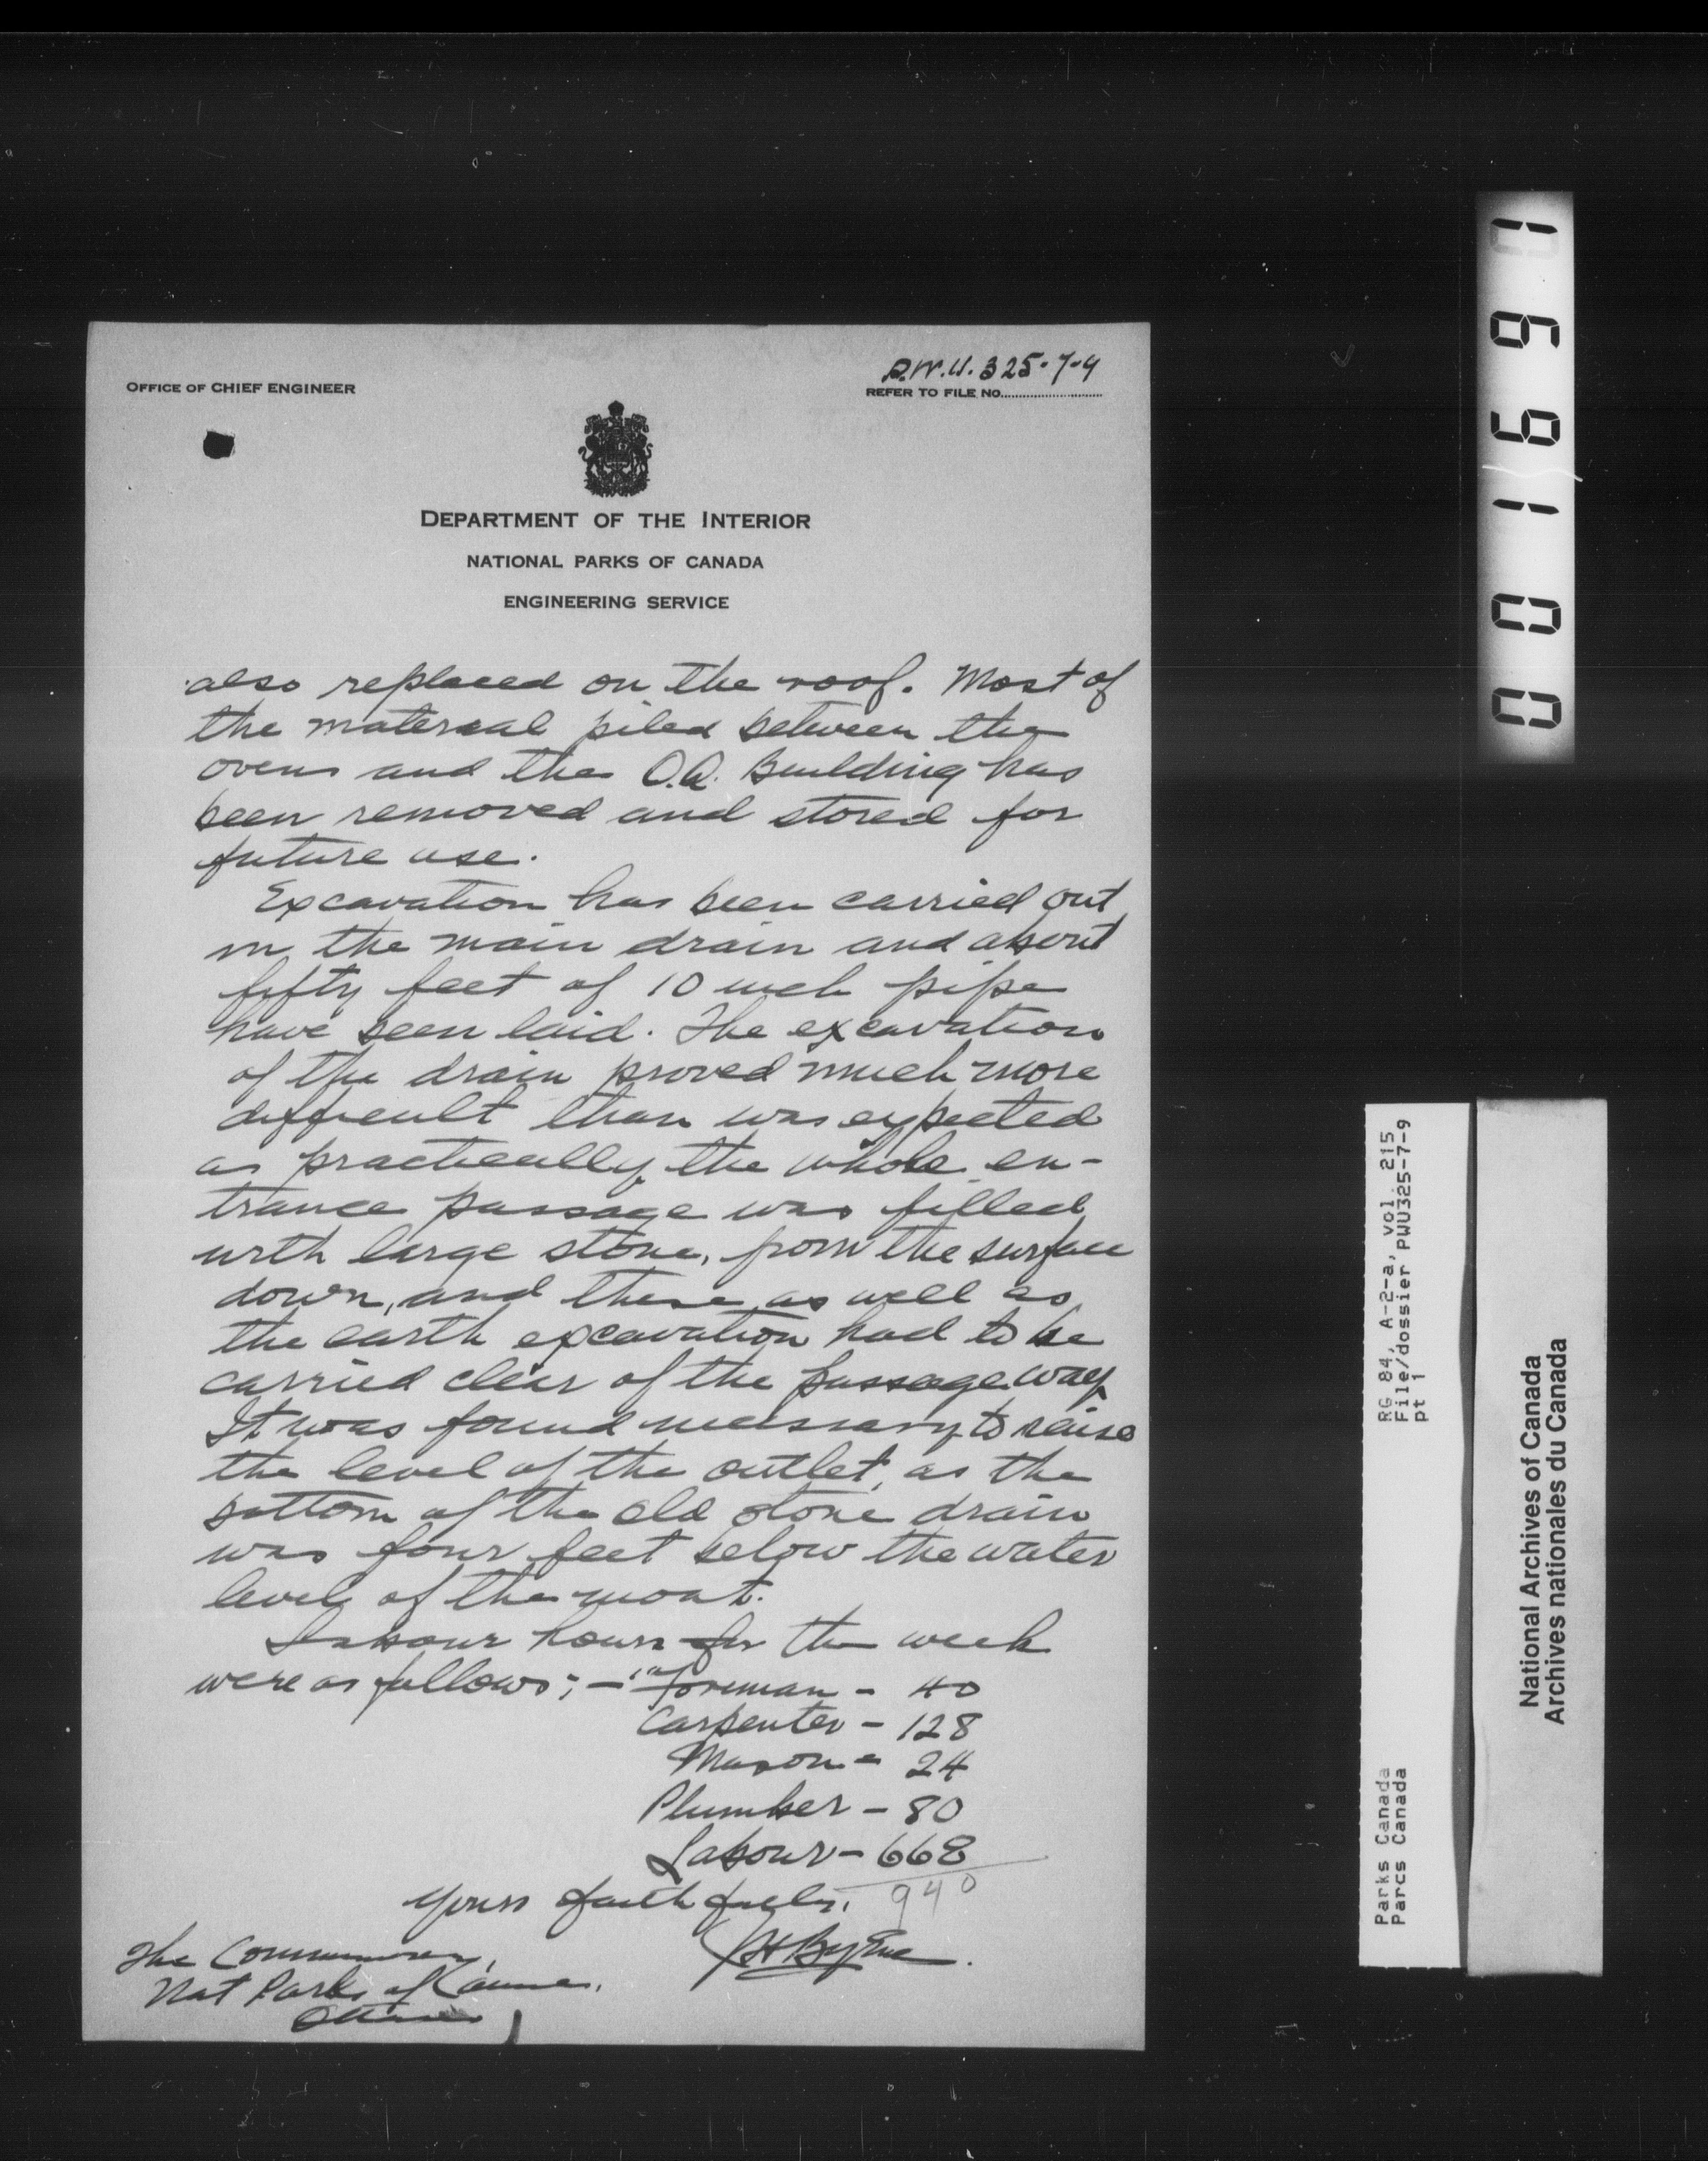 OFFICE OF CHIEF ENGINEER
P.W.U. 325-7-9
REFER TO FILE NO.
DEPARTMENT OF THE INTERIOR
NATIONAL PARKS OF CANADA
ENGINEERING SERVICE
also replaced on the roof. Most of
the material piled between the
ovens and the O.Q. Building has
been removed and stored for
future use.
Excavation has been carried out
in the main drain and about
fifty feet of 10 inch pipe
have been laid. The excavation
of the drain proved much more
difficult than was expected
as practically the whole en-
trance passage was filled
with large stone, from the surface
down, and these as well as
the earth excavation had to be
carried clear of the passage way
It was found necessary to raise
the level of the outlet, as the
bottom of the old stone drain
was four feet below the water
level of the moat.
Labour hours for the week
were as follows; - Foreman - 40
Carpenter - 128
Mason - 24
Plumber - 80
Labour - 668
940
Yours faithfully,
The Commissioner,
Nat Parks of Canada,
Ottawa
001691
RG 84, A-2-a, vol. 215
File/dossier PWU325-7-9
pt 1
Parks Canada
Parcs Canada
National Archives of Canada
Archives nationales du Canada